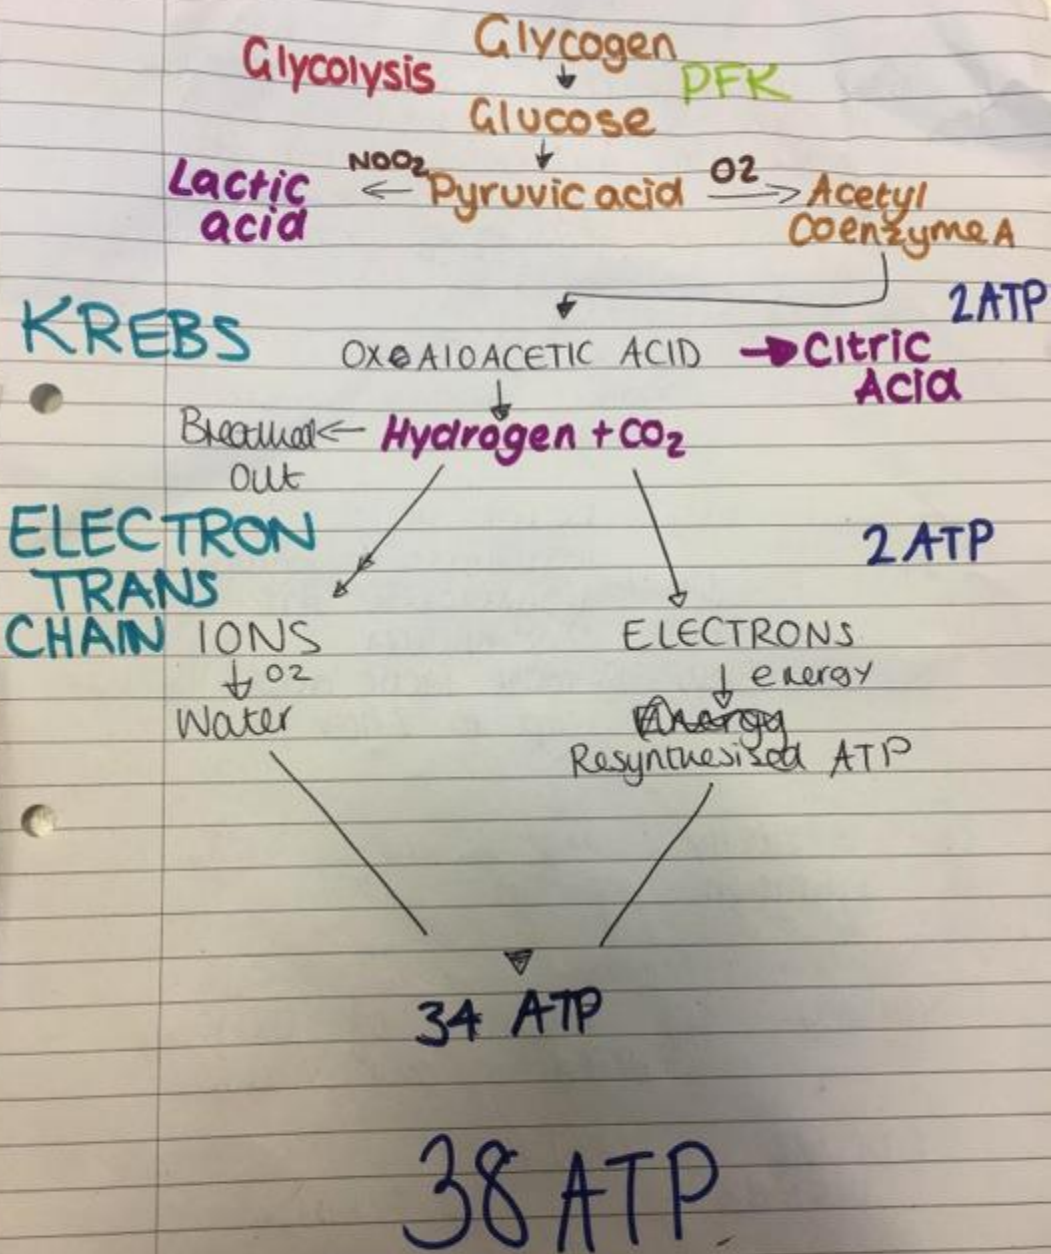 Glycogen
Glycolysis
PFK
Glucose
NO O2
O2
Lactic
acid
Pyruvic acid
Acetyl
Coenzyme A
2 ATP
KREBS
OXOALOACETIC ACID
Citric
Acid
Breathed
Out
Hydrogen + CO2
ELECTRON
TRANS
CHAIN
2 ATP
IONS
ELECTRONS
O2
energy
Water
Energy
Resynthesised ATP
34 ATP
38 ATP